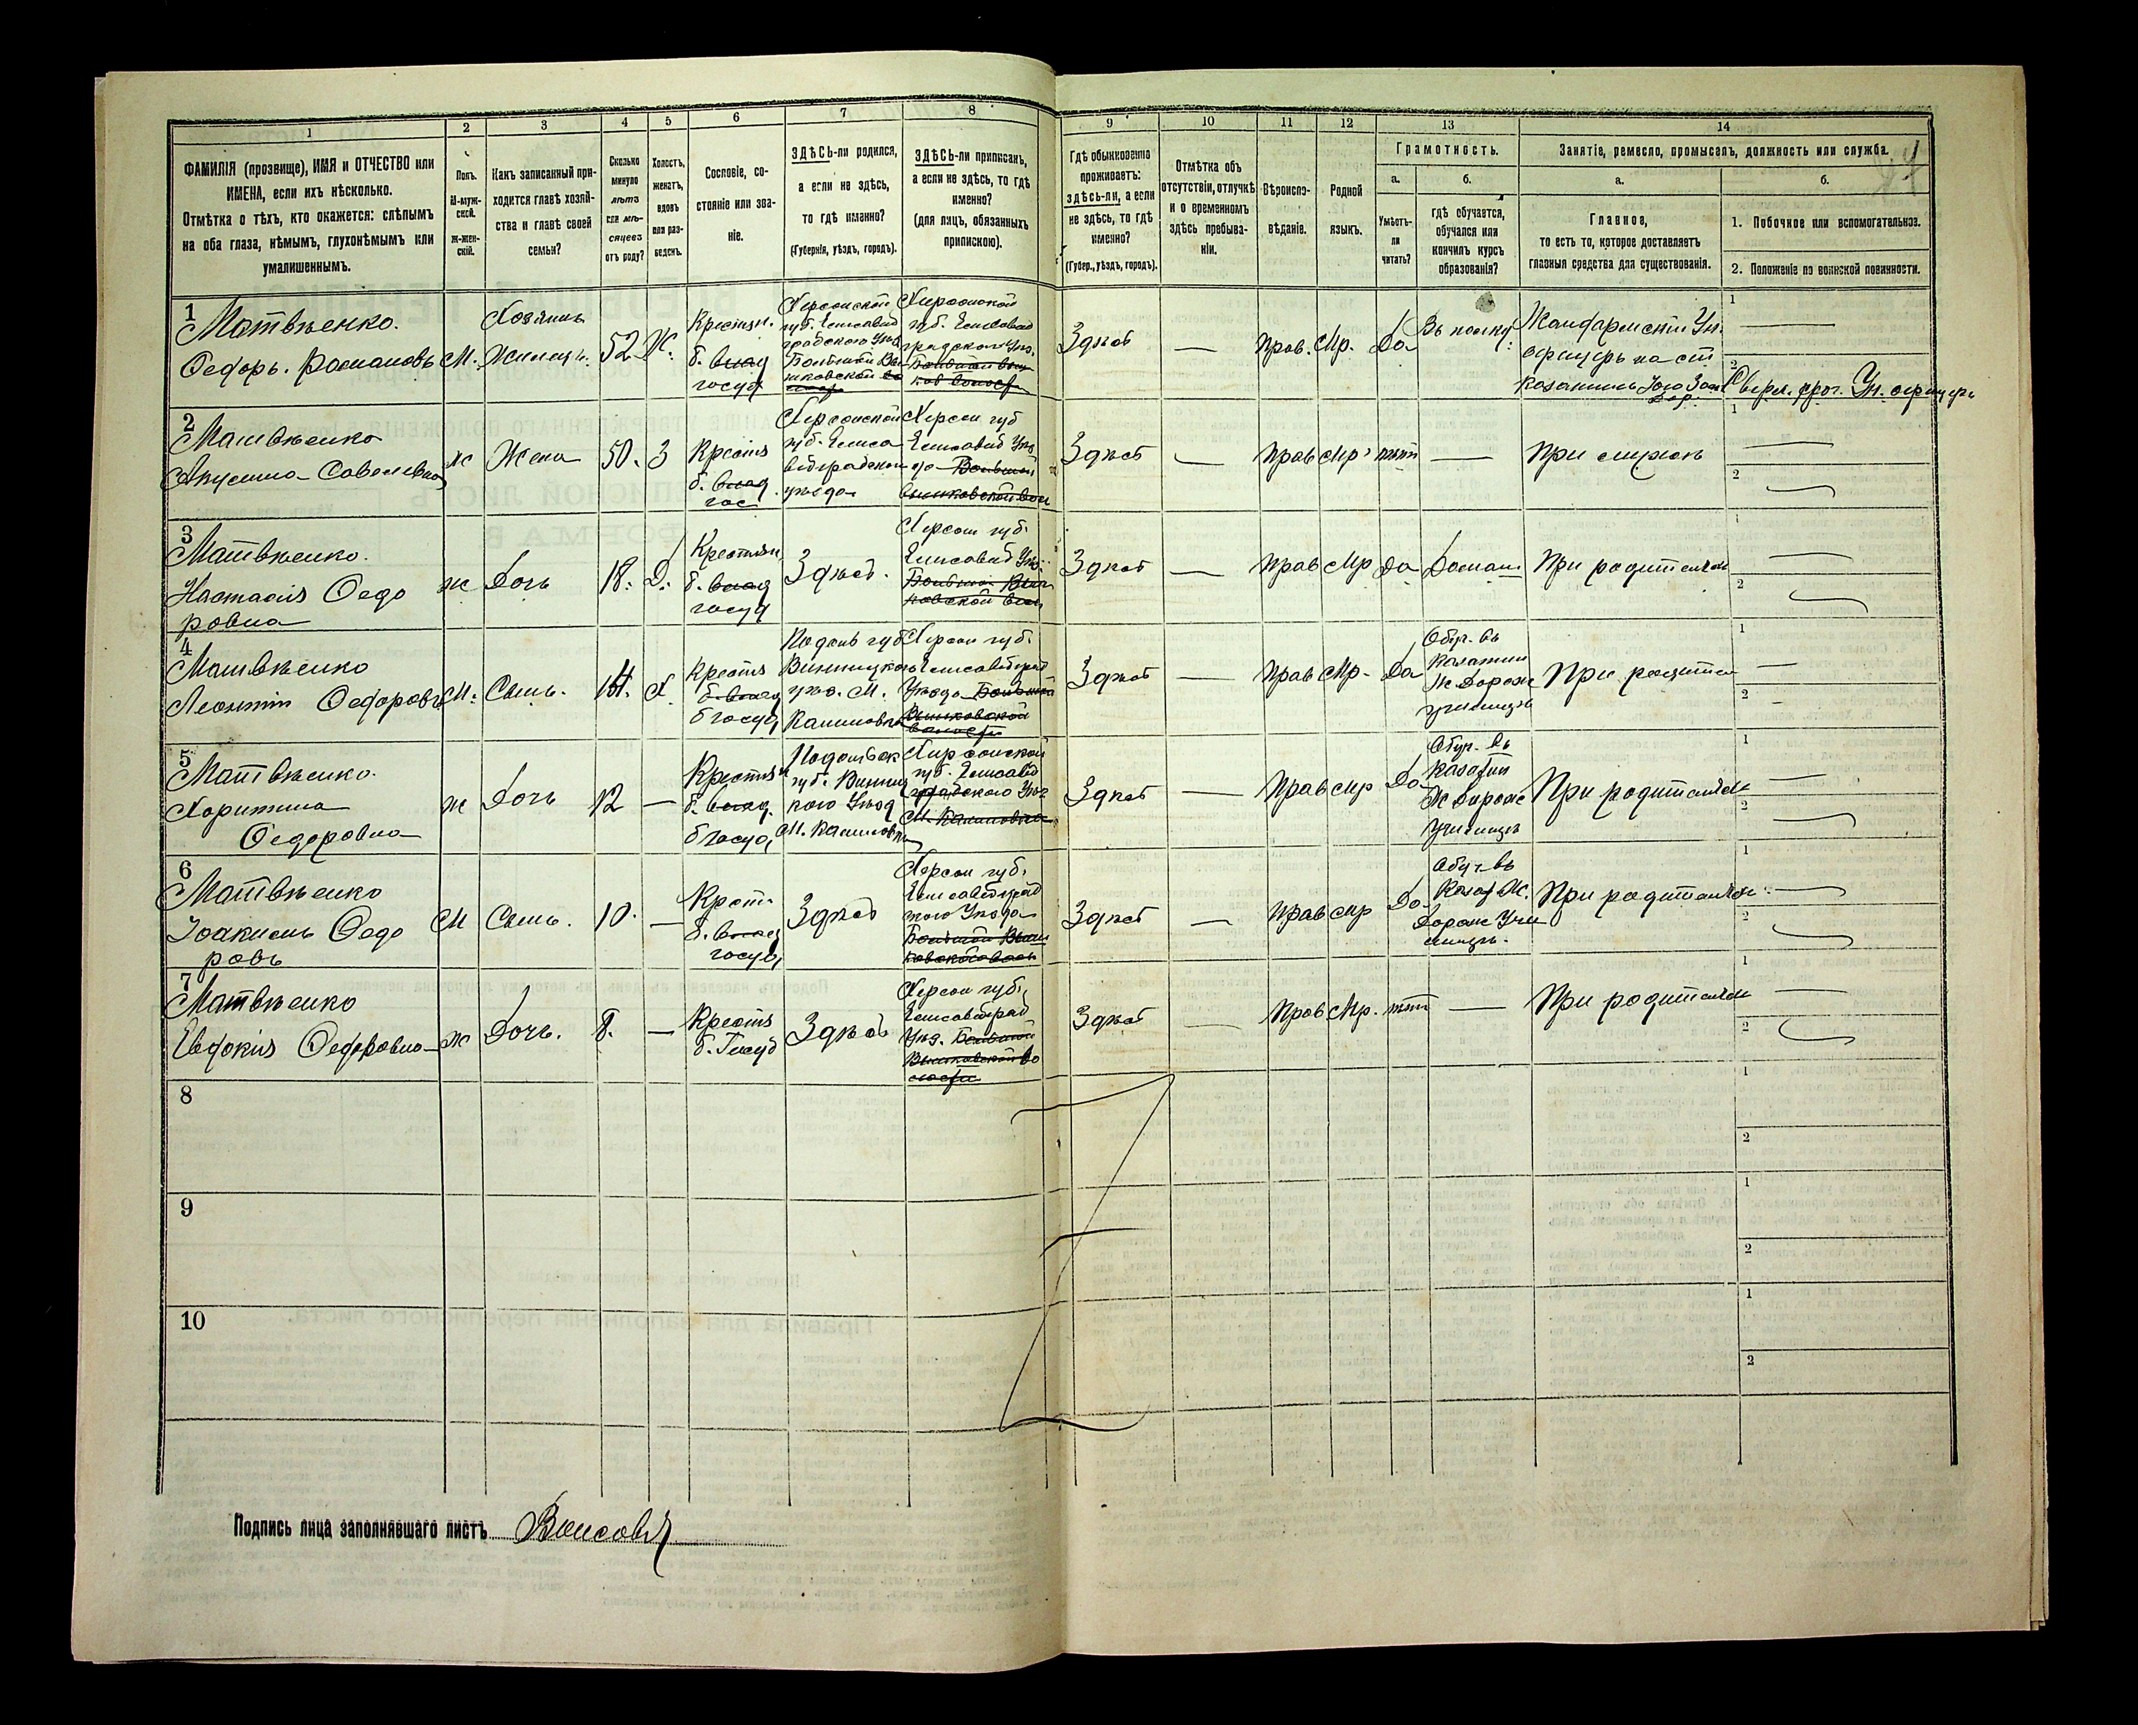 1
2
3
4
5
6
7
8
ФАМИЛІЯ (прозвище), ИМЯ и ОТЧЕСТВО или
ИМЕНА, если ихъ нѣсколько.
Отмѣтка о тѣхъ, кто окажется: слѣпымъ
на оба глаза, нѣмымъ, глухонѣмымъ или
умалишеннымъ.
Полъ.
М-муж-
ской.
Ж-жен-
скій.
Какъ записанный при-
ходится главѣ хозяй-
ства и главѣ своей
семьи?
Сколько
минуло
лѣтъ
или мѣ-
сяцевъ
отъ роду?
Холостъ,
женатъ,
вдовъ
или раз-
веденъ.
Сословіе, со-
стояніе или зва-
ніе.
ЗДѢСЬ-ли родился,
а если не здѣсь,
то гдѣ именно?
(Губернія, уѣздъ, городъ).
ЗДѢСЬ-ли приписанъ,
а если не здѣсь, то гдѣ
именно?
(для лицъ, обязанныхъ
припискою).
9
10
11
12
13
14
Гдѣ обыкновенно
проживаетъ:
здѣсь-ли, а если
не здѣсь, то гдѣ
именно?
(Губер., уѣздъ, городъ).
Отмѣтка объ
отсутствіи, отлучкѣ
и о временномъ
здѣсь пребыва-
ніи.
Вѣроиспо-
вѣданіе.
Родной
языкъ.
Грамотность.
а.
б.
Умѣетъ-
ли
читать?
гдѣ обучается,
обучался или
кончилъ курсъ
образованія?
Занятіе, ремесло, промыселъ, должность или служба.
а.
б.
Главное,
то есть то, которое доставляетъ
главныя средства для существованія.
1. Побочное или вспомогательное.
2. Положеніе по воинской повинности.
1
Матвѣенко.
Федоръ. Романовъ
М.
Хозяинъ
Жилецъ.
52
Ж.
Крестьян.
б. влад
госуд
Херсонской
губ. Елисавет
градского Уѣз
Херсонской
губ. Елисавет
градского Уѣз.
Здѣсь
—
Прав.
Мр.
Да
Въ полку.
Жандармскій Ун.
офицеръ на ст
Казатинъ Юго Зап
дор.
1
2
Ун. офицеръ
2
Матвѣенко
Савельевна
ж
Жена
50.
З
Крестья
б. влад.
гос
Херсонской
губ. Елиса
ветградского
уѣзда
Херсон губ
Елисавет Уѣз
Здѣсь
—
Прав
Мр.
нѣтъ
—
При мужѣ
1
2
3
Матвѣенко.
Настасія Федо
ровна
ж
Дочь
18.
Д.
Крестьян
б. влад
госуд
Здѣсь.
Херсон губ.
Елисавет Уѣз.
Здѣсь
—
Прав
Мр
да
Домаш
При родителях
1
2
4
Матвѣенко
Леонтій Федоровъ
М.
Сынъ.
14.
Х
Крестья
б. влад
б госуд
Подоль губ
Винницкого
уѣз. М.
Калиновка
Херсон губ.
Елисаветград
Уѣзда
Здѣсь
—
Прав
Мр.
Да
Обуч. въ
Казатин
Ж Дорож
училищѣ
При родител
1
2
5
Матвѣенко.
Харитина
Федоровна
ж
Дочь
12
—
Крестьян
б. влад.
б госуд
Подольск
губ. Винниц
кого Уѣзд
М. Калиновка
Херсонской
губ. Елисавет
градского Уѣз
М. Калиновка
Здѣсь
—
Прав
Мр
Да
Обуч. въ
Казатин
Ж Дорож
Училищѣ
При родителях
1
2
6
Матвѣенко
Іоакимъ Федо
ровъ
М
Сынъ.
10.
—
Крест.
б. влад
госуд
Здѣсь
Херсон губ.
Елисаветград
кого Уѣзда
Здѣсь
—
Прав
Мр
Да
Обуч въ
Казат Ж.
Дорож Учи
лищѣ.
При родителях
1
2
7
Матвѣенко
Евдокія Федоровна
ж
Дочь.
8.
—
Крестья
б. Госуд
Здѣсь
Херсон губ.
Елисаветград
Уѣз.
Здѣсь
—
Прав
Мр.
нѣтъ
—
При родителях
1
2
8
1
2
9
1
2
10
1
2
Подпись лица заполнявшаго листъ